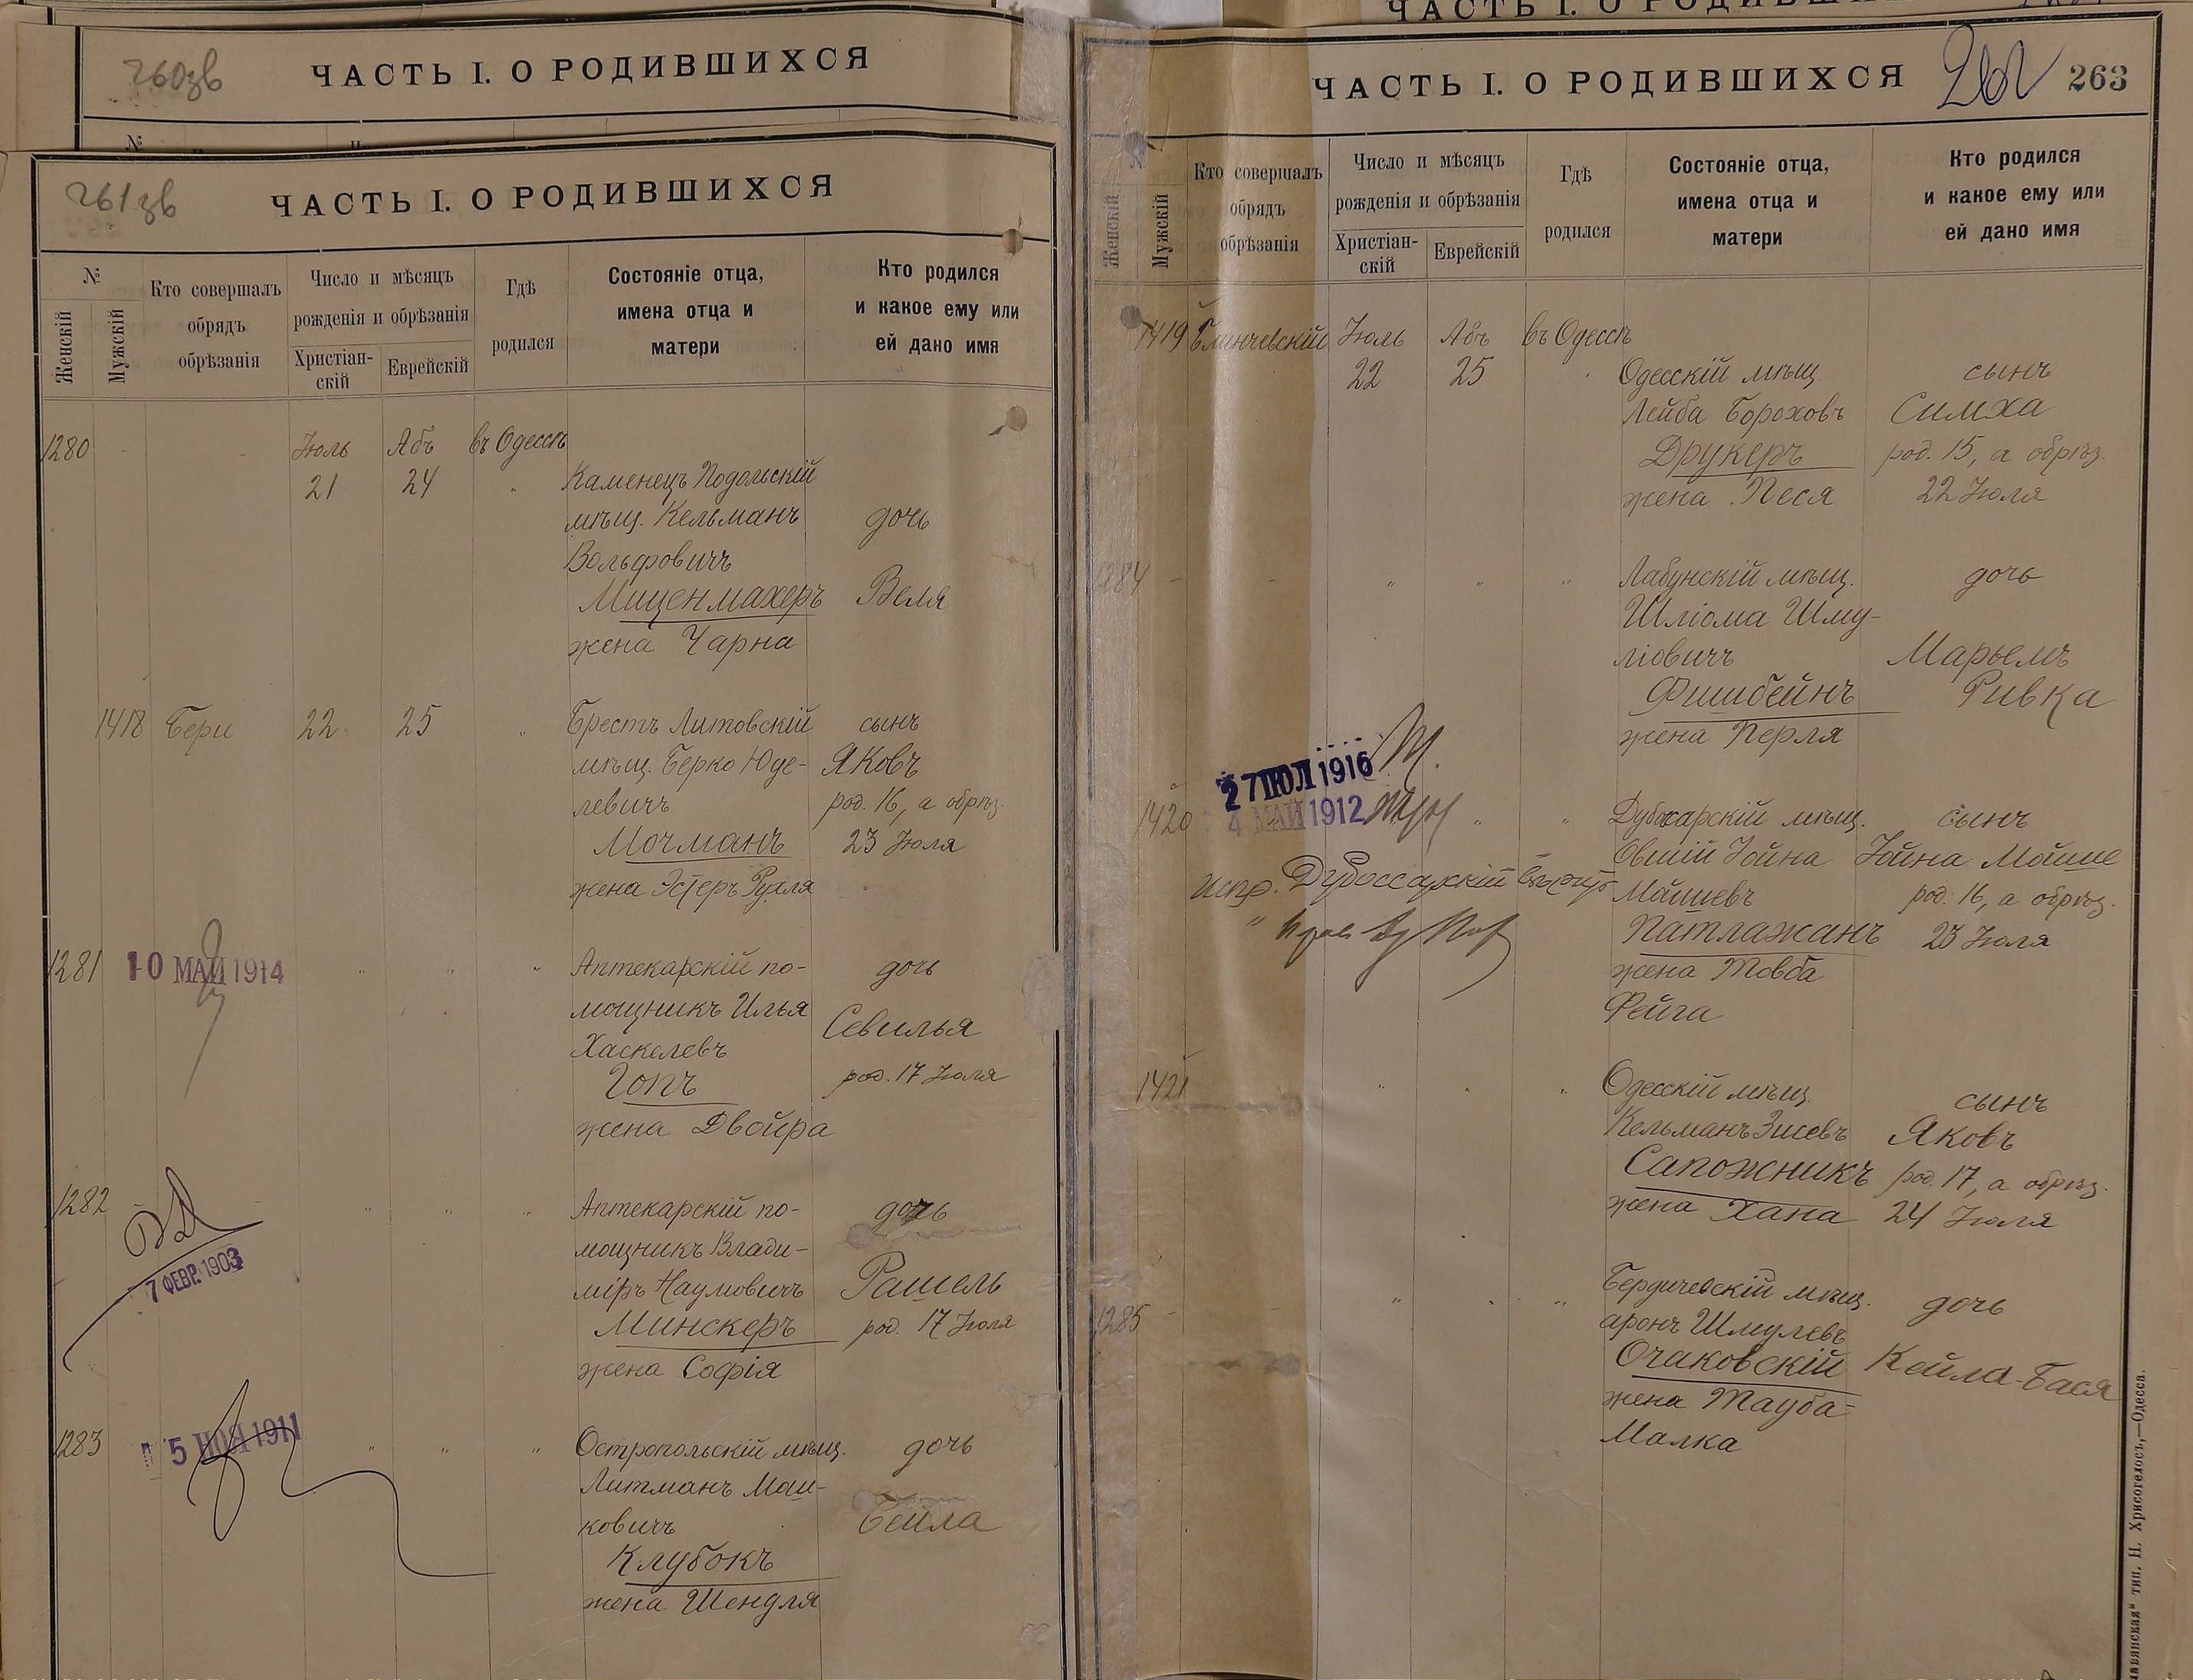 260зв
ЧАСТЬ I. О РОДИВШИХСЯ
№
261зв
ЧАСТЬ I. О РОДИВШИХСЯ
№
Женскій
Мужскій
Кто совершалъ
обрядъ
обрѣзанія
Число и мѣсяцъ
рожденія и обрѣзанія
Христіан-
скій
Еврейскій
Гдѣ
родился
Состояніе отца,
имена отца и
матери
Кто родился
и какое ему или
ей дано имя
1280 - - Іюль Абъ въ Одессѣ
21 24 " Каменецъ Подольскій
мѣщ. Кельманъ дочь
Вольфовичъ
Миценмахеръ Веля
жена Чарна
1418 Бери 22 25 " Брестъ Литовскій сынъ
мѣщ. Берко Юде- Яковъ
левичъ род. 16, а обрѣз.
Мочманъ 23 Іюля
жена Эстеръ Рухля
1281 10 МАЙ 1914 " " " Аптекарскій по- дочь
мощникъ Илья Севилья
Хаскелевъ
Гопъ род. 17 Іюля
жена Двойра
1282 - - " " " Аптекарскій по- дочь
7 ФЕВР. 1903
мощникъ Влади-
міръ Наумовичъ Рашель
Минскеръ род. 17 Іюля
жена Софія
1283 5 НОЯ 1911 " " " Остропольскій мѣщ. дочь
Литманъ Маш-
ковичъ Бейла
Клубокъ
жена Шендля
ЧАСТЬ I. О РОДИВШИХСЯ
262 263
№
Женскій
Мужскій
Кто совершалъ
обрядъ
обрѣзанія
Число и мѣсяцъ
рожденія и обрѣзанія
Христіан-
скій
Еврейскій
Гдѣ
родился
Состояніе отца,
имена отца и
матери
Кто родился
и какое ему или
ей дано имя
1419 Блинчевскій Іюль Абъ въ Одессѣ
22 25 Одесскій мѣщ. сынъ
Лейба Бороховъ Симха
Друкеръ род. 15, а обрѣз.
жена Песя 22 Іюля
1284 - - " " " Лабунскій мѣщ. дочь
Шліома Шму-
ліовичъ Марьемъ
Фишбейнъ Ривка
жена Перля
27 ІЮЛ 1916
4 МАЙ 1912
1420 " " Дубосарскій мѣщ. сынъ
Овшій Іойна Іойна Мойше
Испр. Дубоссарскій
Мойшевъ род. 16, а обрѣз.
Патлажанъ 23 Іюля
жена Товба
Фейга
1421 " " " Одесскій мѣщ. сынъ
Кельманъ Зисевъ Яковъ
Сапожникъ род. 17, а обрѣз.
жена Хана 24 Іюля
1285 - " " " Бердичевскій мѣщ. дочь
аронъ Шмулевъ
Очаковскій Кейла-Бася
жена Тауба-
Малка
тип. Н. Хрисогелосъ,—Одесса.